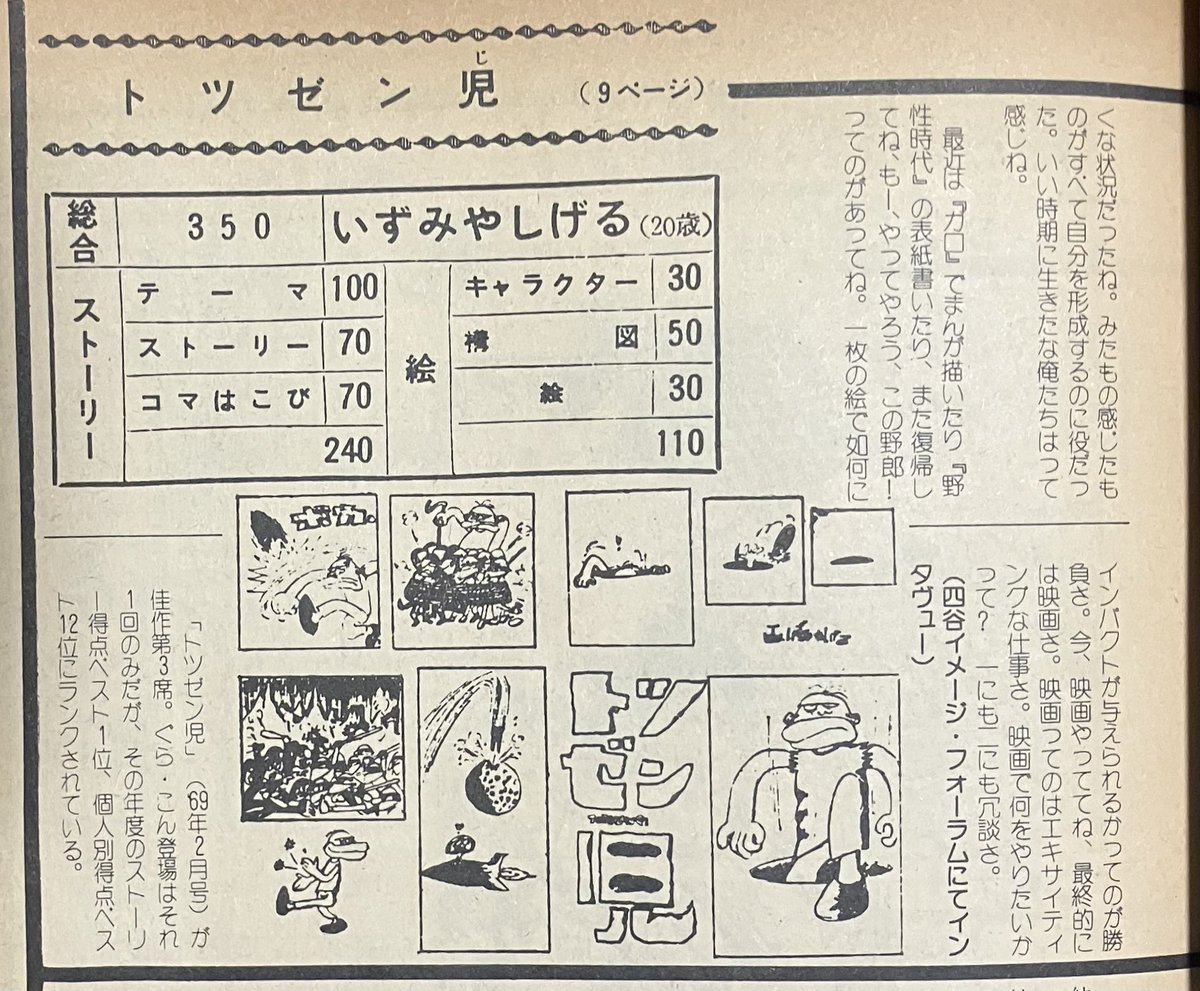 トツゼン児（9ページ）
じ
総合
350
いずみやしげる（20歳）
ストーリー
テーマ 100
ストーリー 70
コマはこび 70
240
絵
キャラクター 30
構図 50
絵 30
110
くな状況だったね。みたもの感じたも
のがすべて自分を形成するのに役だっ
た。いい時期に生きたな俺たちはって
感じね。
最近は『ガロ』でまんが描いたり『野
性時代』の表紙書いたり、また復帰し
てね、もー、やってやろう、この野郎！
ってのがあってね。一枚の絵で如何に
インパクトが与えられるかってのが勝
負さ。今、映画やっててね、最終的に
は映画さ。映画ってのはエキサイティ
ングな仕事さ。映画で何をやりたいか
って？　一にも二にも冗談さ。
（四谷イメージ・フォーラムにてイン
タヴュー）
トツ
ゼン
児
「トツゼン児」（'69年2月号）が
佳作第3席。ぐら・こん登場はそれ
1回のみだが、その年度のストーリ
ー得点ベスト1位、個人別得点ベス
ト12位にランクされている。